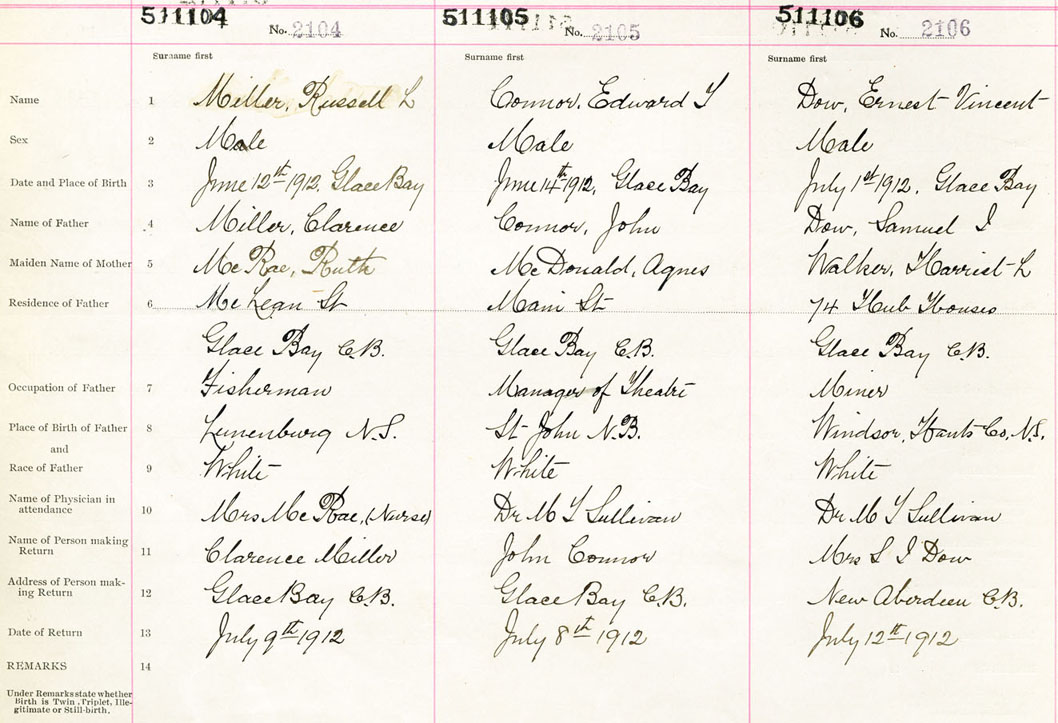 511104 511105 511106
No. 2104 No. 2105 No. 2106
Surname first Surname first Surname first
Name 1 Miller, Russell L Connor, Edward T Dow, Ernest Vincent
Sex 2 Male Male Male
Date and Place of Birth 3 June 12th 1912, Glace Bay June 14th 1912, Glace Bay July 1st 1912, Glace Bay
Name of Father 4 Miller, Clarence Connor, John Dow, Samuel I
Maiden Name of Mother 5 McRae, Ruth McDonald, Agnes Walker, Harriet L
Residence of Father 6 McLean St Main St 74 Hub Houses
Glace Bay C.B. Glace Bay C.B. Glace Bay C.B.
Occupation of Father 7 Fisherman Manager of Theatre Miner
Place of Birth of Father 8 Lunenburg N.S. St John N.B. Windsor, Hants Co, N.S.
and
Race of Father 9 White White White
Name of Physician in
attendance 10 Mrs McRae, (Nurse) Dr M T Sullivan Dr M T Sullivan
Name of Person making
Return 11 Clarence Miller John Connor Mrs S I Dow
Address of Person mak-
ing Return 12 Glace Bay C.B. Glace Bay C.B. New Aberdeen C.B.
Date of Return 13 July 9th 1912 July 8th 1912 July 12th 1912
REMARKS 14
Under Remarks state whether
Birth is Twin, Triplet, Ille-
gitimate or Still-birth.